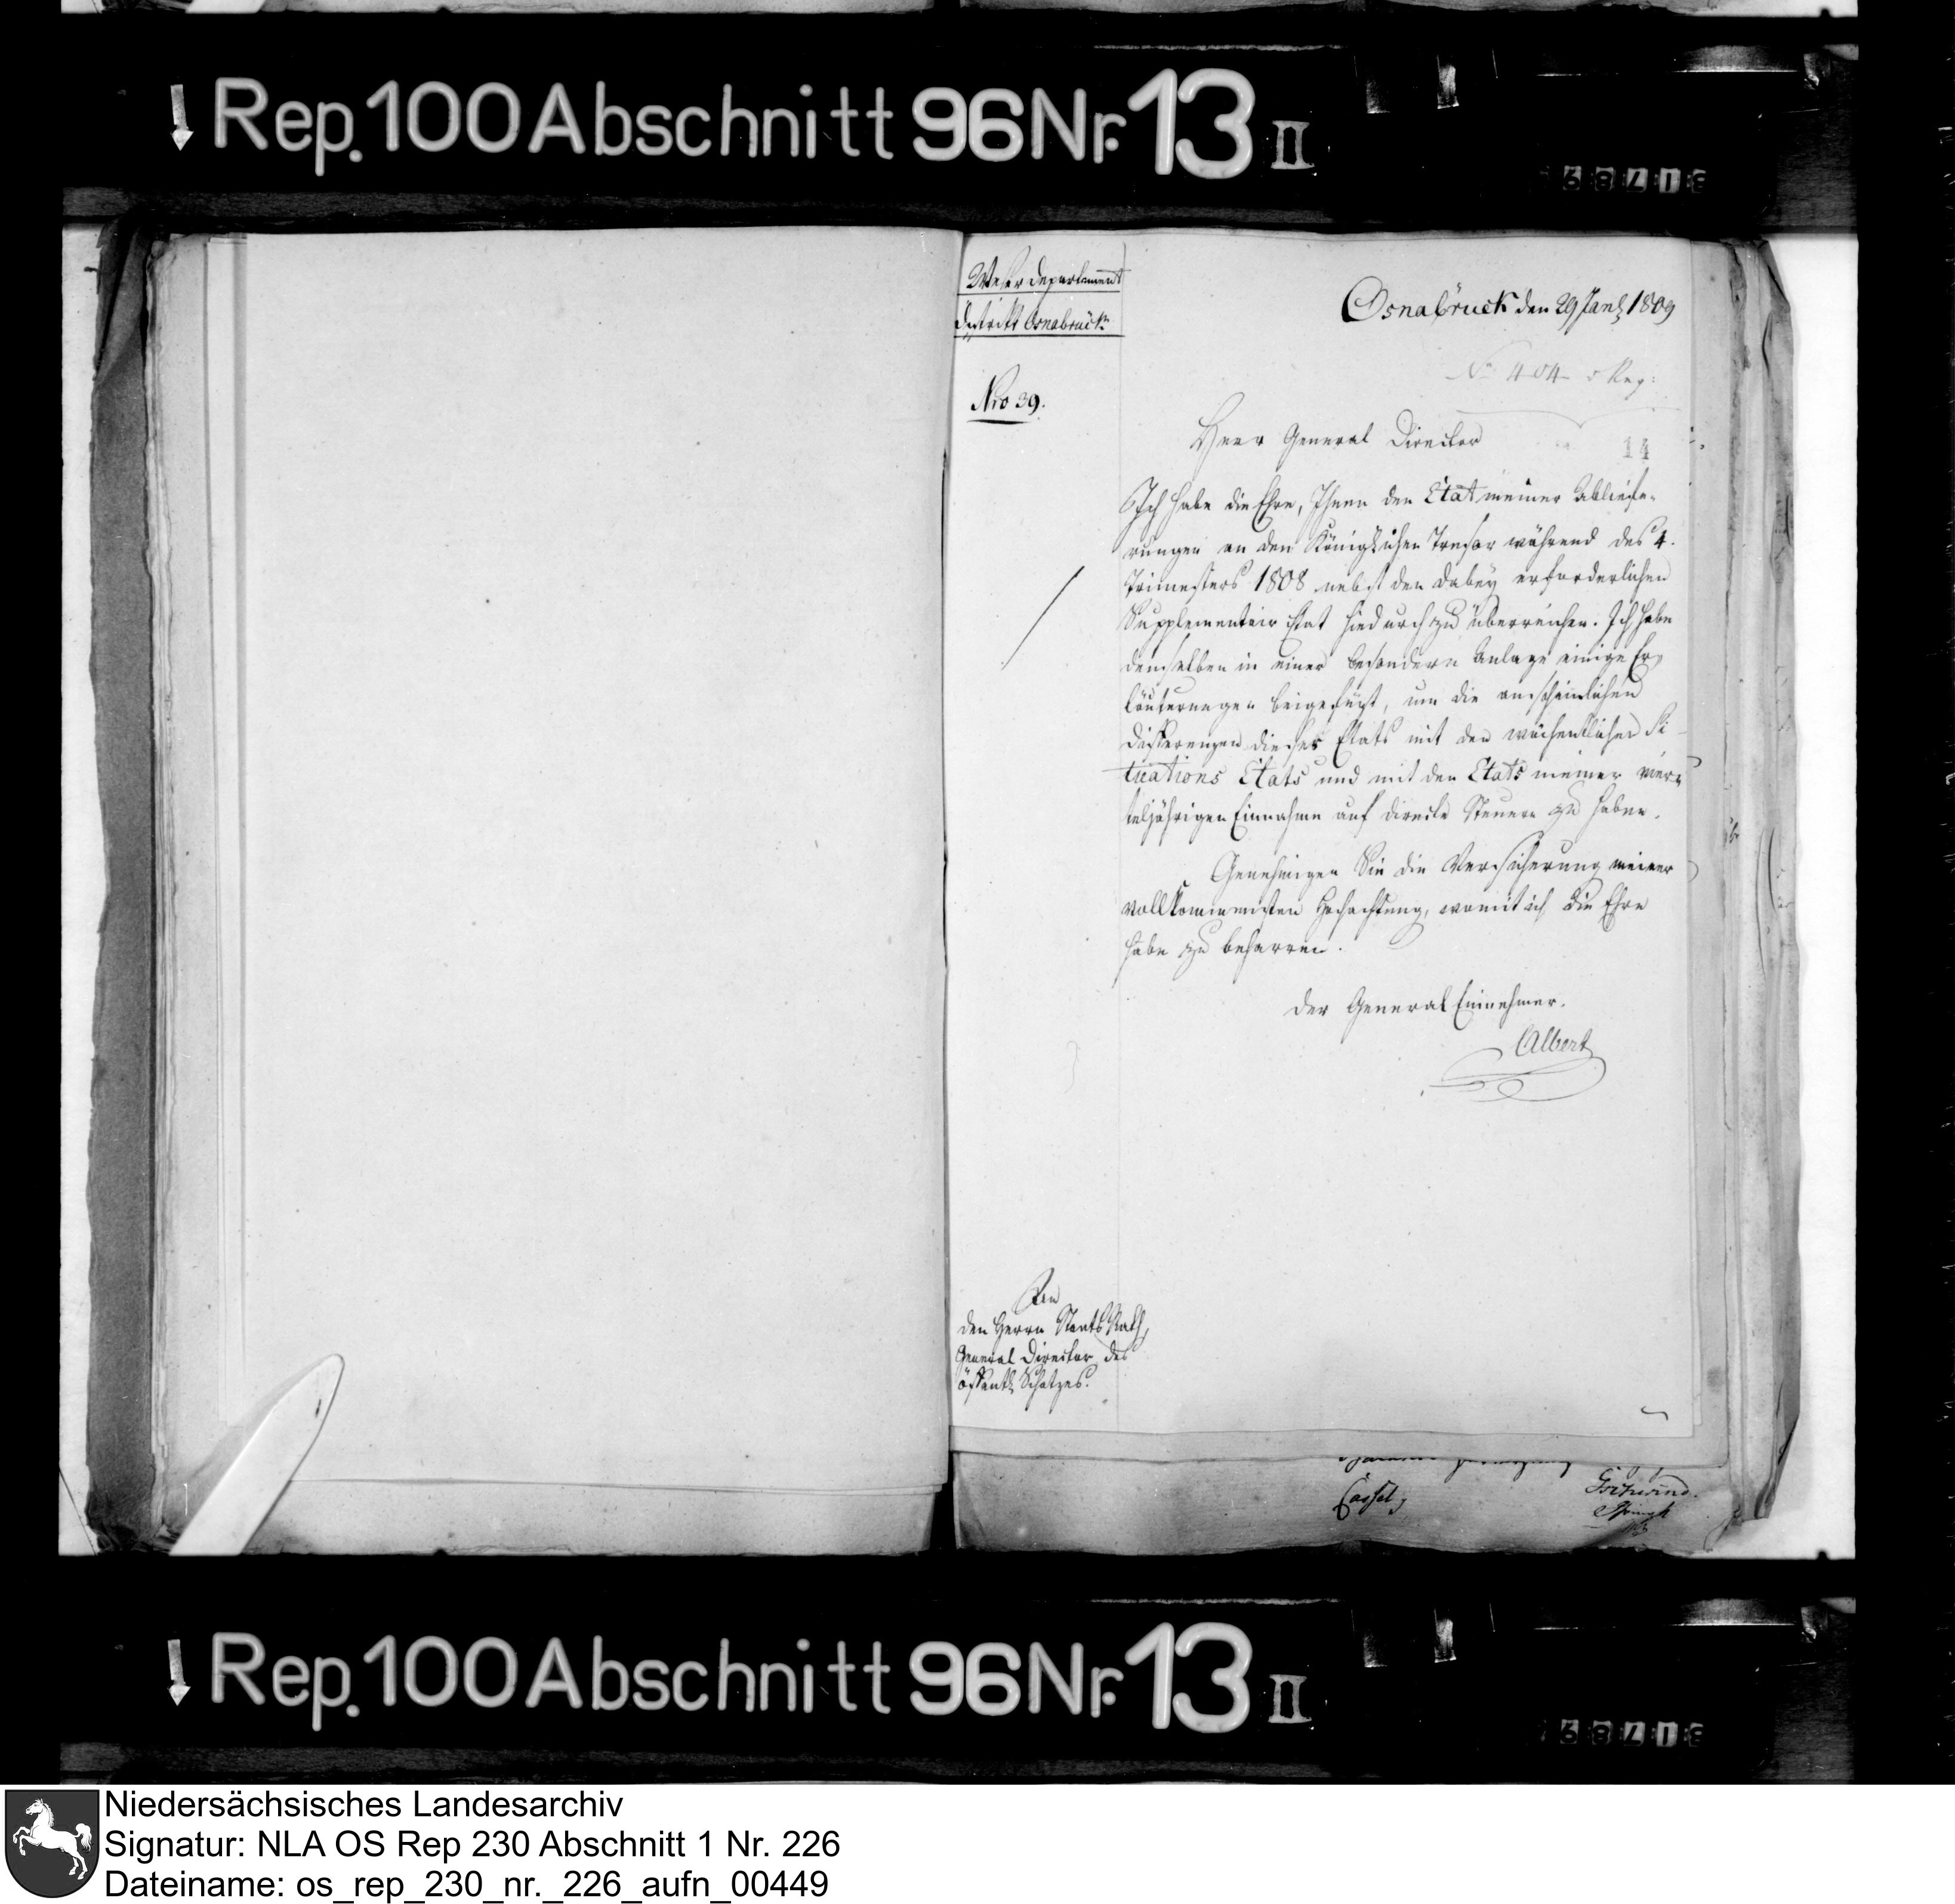 Rep. 100 Abschnitt 96 Nr. 13 II
31789
Weser departement
District Osnabrück
Nro 39.
Osnabrück den 29 Janr 1809
No 404 Reg:
14
Herr General Director
Ich habe die Ehre, Ihnen den Etat meiner Abliefe-
rungen an den Königlichen Tresor während des 4.
Trimesters 1808 nebst den dabey erforderlichen
Supplementair Etat hiedurch zu überreichen. Ich habe
demselben in einer besondern Anlage einige Er-
läuterungen beigefügt, um die anscheinlichen
Differenzen dieses Etats mit den wöchentlichen Si-
tuations Etats und mit den Etats meiner vier-
teljährigen Einnahme auf directe Steuern zu heben.
Genehmigen Sie die Versicherung meiner
vollkommensten Hochachtung, womit ich die Ehre
habe zu beharren.
Der General Einnehmer.
Albert
An
den Herrn Staats Rath,
General Director des
öffentl Schatzes.
Cassel,
Rep. 100 Abschnitt 96 Nr. 13 II
31789
Niedersächsisches Landesarchiv
Signatur: NLA OS Rep 230 Abschnitt 1 Nr. 226
Dateiname: os_rep_230_nr._226_aufn_00449